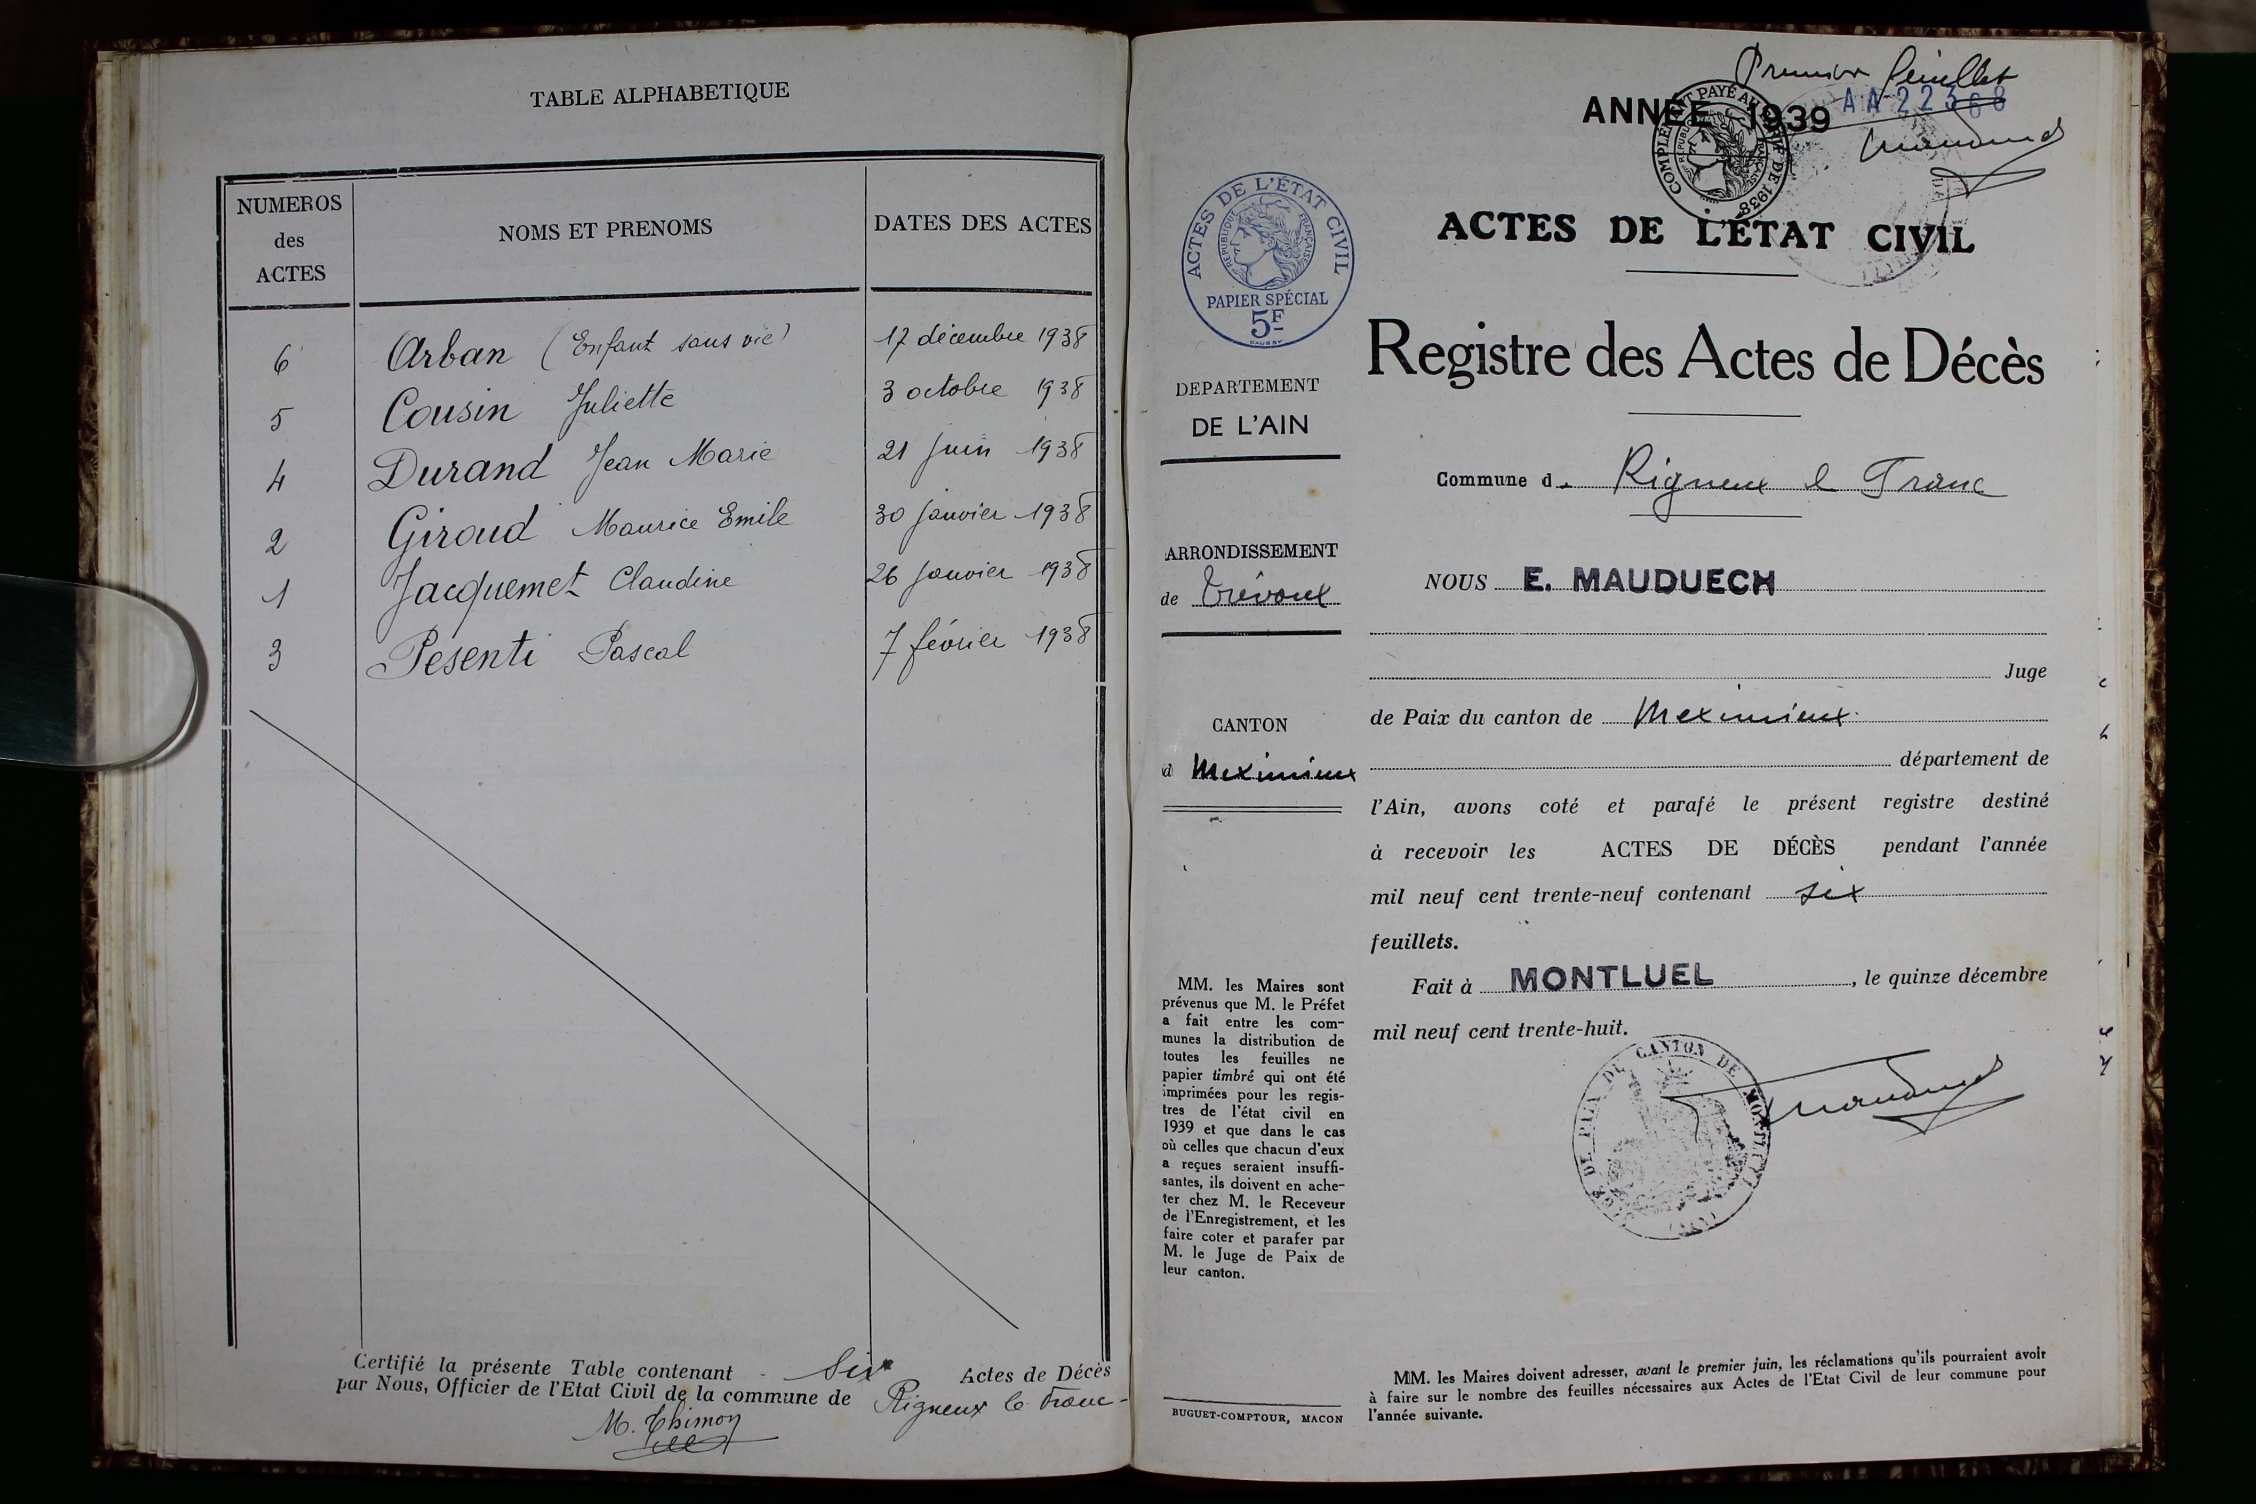 TABLE ALPHABETIQUE
NUMEROS
des
ACTES
NOMS ET PRENOMS
DATES DES ACTES
6 Arban (Enfant sans vie) 17 décembre 1938
5 Cousin Juliette 3 octobre 1938
4 Durand Jean Marie 21 juin 1938
2 Giroud Maurice Emile 30 janvier 1938
1 Jacquemet Claudine 26 janvier 1938
3 Pesenti Pascal 7 février 1938
Certifié la présente Table contenant Six Actes de Décès
par Nous, Officier de l'Etat Civil de la commune de Rigneux le Franc
M. Thimon
Premier feuillet
ANNÉE 1939
AA 22368
COMPLEMENT PAYÉ AU TARIF DE 1938
RÉPUBLIQUE FRANÇAISE
ACTES DE L'ÉTAT CIVIL
RÉPUBLIQUE FRANÇAISE
PAPIER SPÉCIAL
5F
ACTES DE L'ÉTAT CIVIL
Registre des Actes de Décès
DEPARTEMENT
DE L'AIN
ARRONDISSEMENT
de Trévoux
CANTON
d Meximieux
MM. les Maires sont
prévenus que M. le Préfet
a fait entre les com-
munes la distribution de
toutes les feuilles ne
papier timbré qui ont été
imprimées pour les regis-
tres de l'état civil en
1939 et que dans le cas
où celles que chacun d'eux
a reçues seraient insuffi-
santes, ils doivent en ache-
ter chez M. le Receveur
de l'Enregistrement, et les
faire coter et parafer par
M. le Juge de Paix de
leur canton.
BUGUET-COMPTOUR, MACON
Commune d Rigneux le Franc
NOUS E. MAUDUECH
Juge
de Paix du canton de Meximieux
département de
l'Ain, avons coté et parafé le présent registre destiné
à recevoir les ACTES DE DÉCÈS pendant l'année
mil neuf cent trente-neuf contenant six
feuillets.
Fait à MONTLUEL, le quinze décembre
mil neuf cent trente-huit.
DE PAIX DU CANTON DE MONTLUEL
(AIN)
MM. les Maires doivent adresser, avant le premier juin, les réclamations qu'ils pourraient avoir
à faire sur le nombre des feuilles nécessaires aux Actes de l'Etat Civil de leur commune pour
l'année suivante.